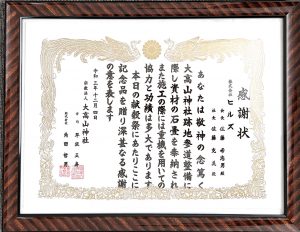 感謝状
株式会社 ヒルズ
会長 佐藤
社長 佐藤
あなたは敬神の念篤く
大高山神社跡地参道整備に
際し資材の石畳を奉納され
また施工の際には重機を用いての
協力と功績は多大であります
本日の献穀祭にあたりここに
記念品を贈り深甚なる感謝
の意を表します
令和三年十二月四日
宗教法人 大高山神社